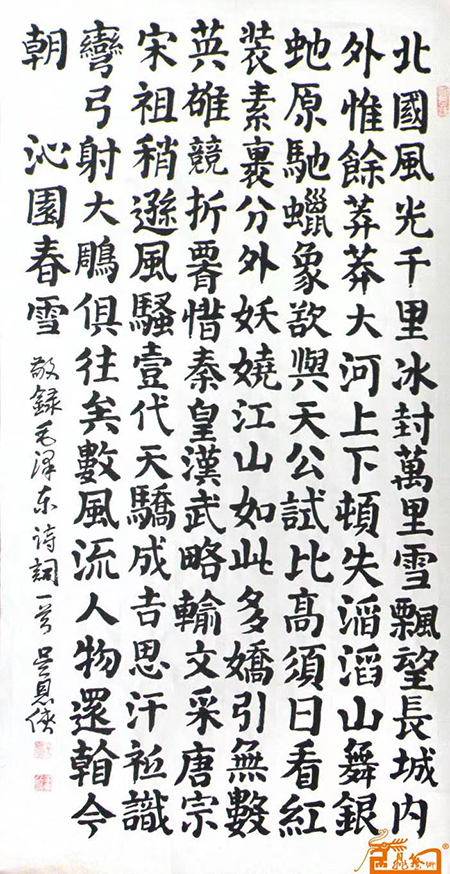 北國風光千里冰封萬里雪飄望長城内
外惟餘莽莽大河上下頓失滔滔山舞銀
虵原馳蠟象欲與天公試比高須日看紅
裝素裹分外妖嬈江山如此多嬌引無數
英雄競折惜秦皇漢武略輸文采唐宗
宋祖稍遜風騷壹代天驕成吉思汗祗識
彎弓射大鵰俱往矣數風流人物還翰今
朝 沁園春雪 敬録毛泽东诗詞一首 吴